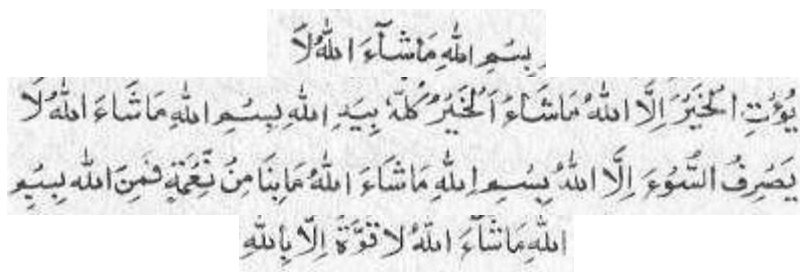 بِسْمِ اللهِ مَاشَآءَ اللهُ لَا
يُؤْتِ الْخَيْرَ اِلَّا اللهُ مَاشَآءَ اَلْخَيْرُ كُلُّهٗ بِيَدِ اللهِ بِسْمِ اللهِ مَاشَاءَ اللهُ لَا
يَصْرِفُ السُّوْءَ اِلَّا اللهُ بِسْمِ اللهِ مَاشَاءَ اللهُ مَابِنَا مِنْ نِّعْمَةٍ فَمِنَ الله بِسْمِ
اللهِ مَاشَآءَ اللهُ لَا قُوَّةَ اِلَّا بِاللهِ